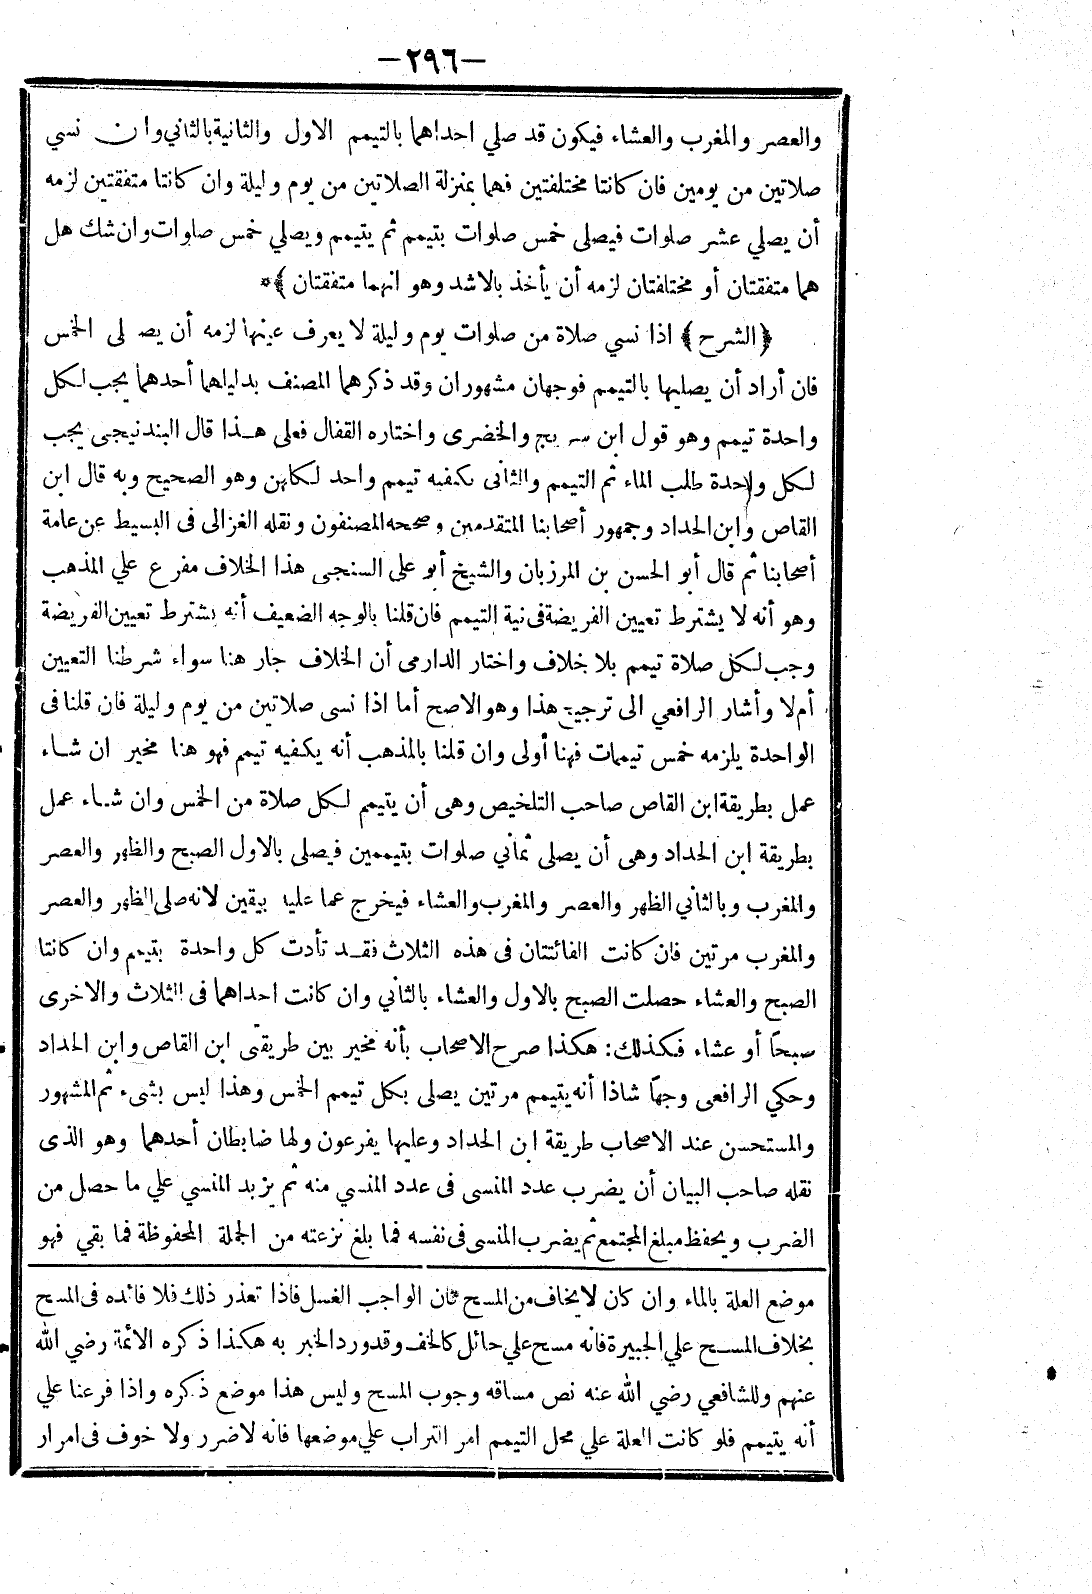 —٢٩٦—
والعصر والمغرب والعشاء فيكون قد صلي احداهما بالتيمم الاول والثانية بالثاني وان نسي
صلاتين من يومين فان كانتا مختلفتين فهما بمنزلة الصلاتين من يوم وليلة وان كانتا متفقتين لزمه
أن يصلي عشر صلوات فيصلى خمس صلوات بتيمم ثم يتيمم ويصلي خمس صلوات وان شك هل
هما متفقتان أو مختلفتان لزمه أن يأخذ بالاشد وهو انهما متفقتان ﴾*
﴿الشرح﴾ اذا نسي صلاة من صلوات يوم وليلة لا يعرف عينها لزمه أن يصلى الخمس
فان أراد أن يصليها بالتيمم فوجهان مشهوران وقد ذكرهما المصنف بدليلهما أحدهما يجب لكل
واحدة تيمم وهو قول ابن سريج والخضرى واختاره القفال فعلى هذا قال البندنيجى يجب
لكل واحدة طلب الماء ثم التيمم والثانى يكفيه تيمم واحد لكلهن وهو الصحيح وبه قال ابن
القاص وابن الحداد وجمهور أصحابنا المتقدمين وصححه المصنفون ونقله الغزالى فى البسيط عن عامة
أصحابنا ثم قال أبو الحسن بن المرزبان والشيخ أبو على السنجى هذا الخلاف مفرع علي المذهب
وهو أنه لا يشترط تعيين الفريضة فى نية التيمم فان قلنا بالوجه الضعيف أنه يشترط تعيين الفريضة
وجب لكل صلاة تيمم بلا خلاف واختار الدارمى أن الخلاف جار هنا سواء شرطنا التعيين
أم لا وأشار الرافعي الى ترجيح هذا وهو الاصح أما اذا نسى صلاتين من يوم وليلة فان قلنا فى
الواحدة يلزمه خمس تيممات فهنا أولى وان قلنا بالمذهب أنه يكفيه تيمم فهو هنا مخير ان شاء
عمل بطريقة ابن القاص صاحب التلخيص وهى أن يتيمم لكل صلاة من الخمس وان شاء عمل
بطريقة ابن الحداد وهى أن يصلى ثماني صلوات بتيممين فيصلى بالاول الصبح والظهر والعصر
والمغرب وبالثاني الظهر والعصر والمغرب والعشاء فيخرج عما عليه بيقين لانه صلى الظهر والعصر
والمغرب مرتين فان كانت الفائتتان فى هذه الثلاث فقد تأدت كل واحدة بتيمم وان كانتا
الصبح والعشاء حصلت الصبح بالاول والعشاء بالثاني وان كانت احداهما فى الثلاث والاخرى
صبحا أو عشاء فكذلك: هكذا صرح الاصحاب بأنه مخير بين طريقتى ابن القاص وابن الحداد
وحكي الرافعى وجها شاذا أنه يتيمم مرتين يصلى بكل تيمم الخمس وهذا ليس بشىء ثم المشهور
والمستحسن عند الاصحاب طريقة ابن الحداد وعليها يفرعون ولها ضابطان أحدهما وهو الذى
نقله صاحب البيان أن يضرب عدد المنسى فى عدد المنسي منه ثم يزيد المنسي علي ما حصل من
الضرب ويحفظ مبلغ المجتمع ثم يضرب المنسى فى نفسه فما بلغ نزعته من الجملة المحفوظة فما بقي فهو
موضع العلة بالماء وان كان لا يخاف من المسح ثان الواجب الغسل فاذا تعذر ذلك فلا فائده فى المسح
بخلاف المسح علي الجبيرة فانه مسح علي حائل كالخف وقد ورد الخبر به هكذا ذكره الائمة رضي الله
عنهم وللشافعي رضي الله عنه نص مساقه وجوب المسح وليس هذا موضع ذكره واذا فرعنا علي
أنه يتيمم فلو كانت العلة علي محل التيمم امر التراب علي موضعها فانه لا ضرر ولا خوف فى امرار